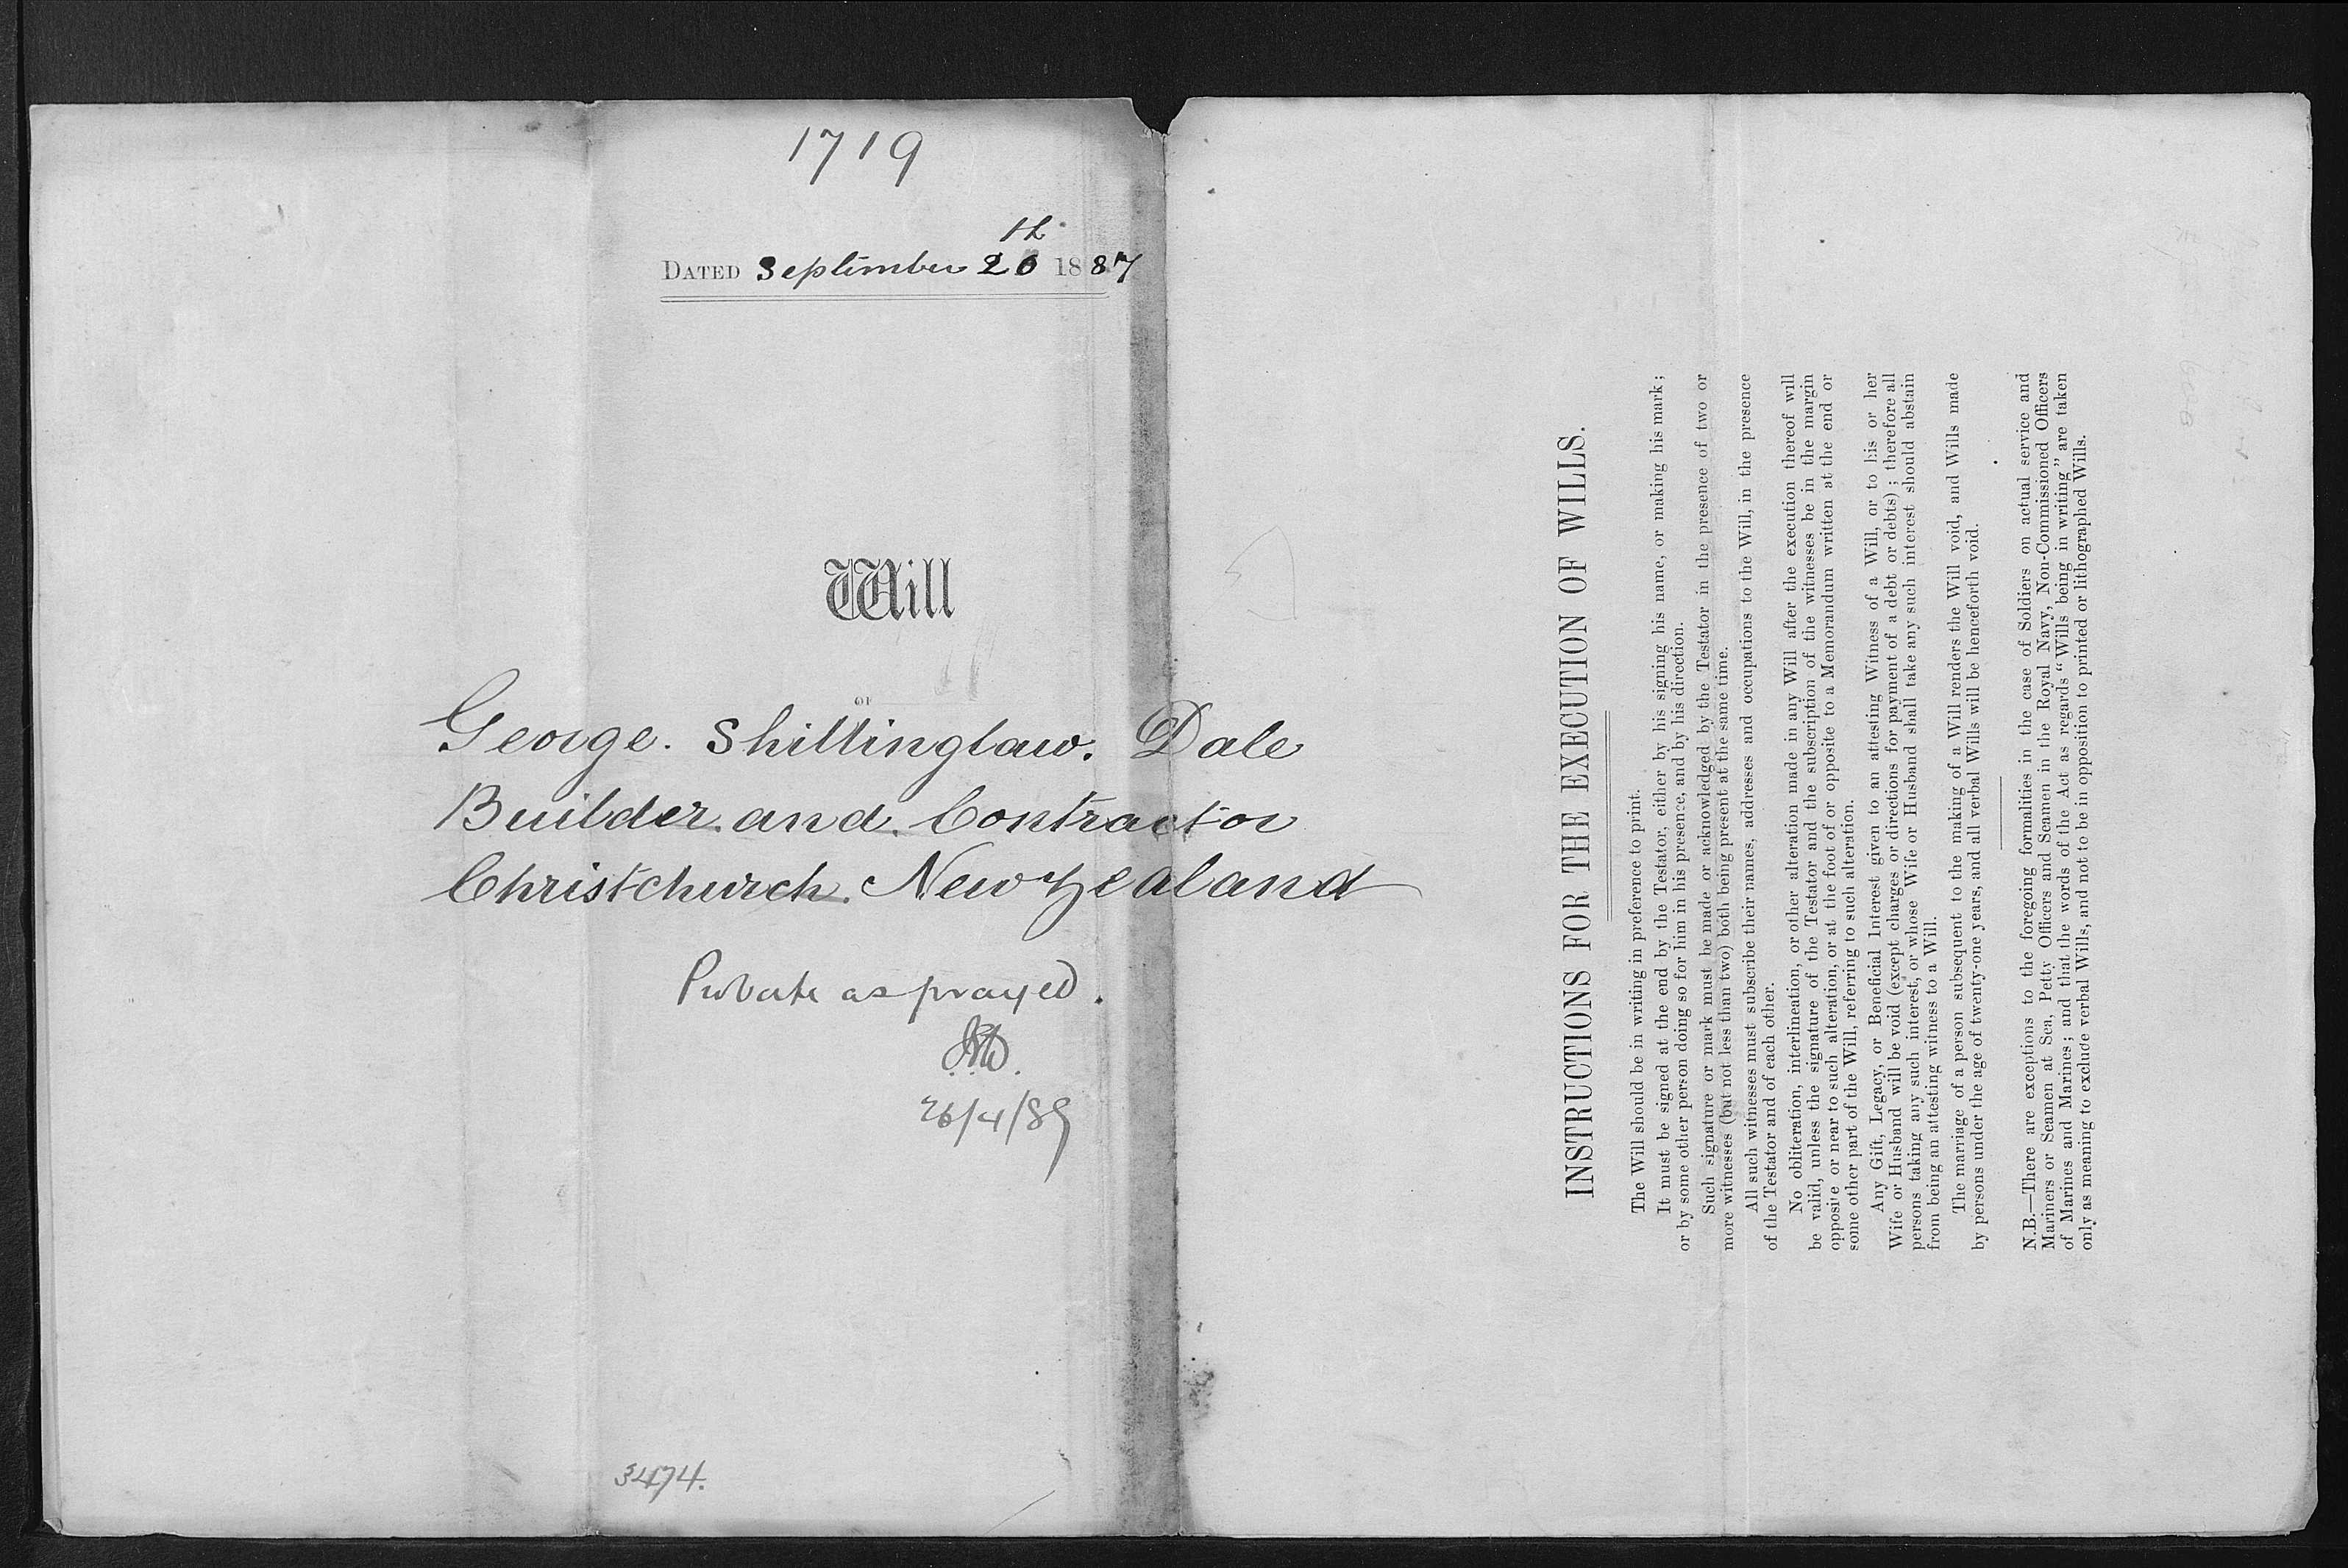 1719
DATED September 20th 1887
Will
OF
George. Shillinglaw. Dale
Builder. and. Contractor
Christchurch. New Zealand
Probate as prayed.
26/4/89
3474.
INSTRUCTIONS FOR THE EXECUTION OF WILLS.
The Will should be in writing in preference to print.
It must be signed at the end by the Testator, either by his signing his name, or making his mark;
or by some other person doing so for him in his presence, and by his direction.
Such signature or mark must be made or acknowledged by the Testator in the presence of two or
more witnesses (but not less than two) both being present at the same time.
All such witnesses must subscribe their names, addresses and occupations to the Will, in the presence
of the Testator and of each other.
No obliteration, interlineation, or other alteration made in any Will after the execution thereof will
be valid, unless the signature of the Testator and the subscription of the witnesses be in the margin
opposite or near to such alteration, or at the foot of or opposite to a Memorandum written at the end or
some other part of the Will, referring to such alteration.
Any Gift, Legacy, or Beneficial Interest given to an attesting Witness of a Will, or to his or her
Wife or Husband will be void (except charges or directions for payment of a debt or debts); therefore all
persons taking any such interest, or whose Wife or Husband shall take any such interest should abstain
from being an attesting witness to a Will.
The marriage of a person subsequent to the making of a Will renders the Will void, and Wills made
by persons under the age of twenty-one years, and all verbal Wills will be henceforth void.
N.B.—There are exceptions to the foregoing formalities in the case of Soldiers on actual service and
Mariners or Seamen at Sea, Petty Officers and Seamen in the Royal Navy, Non-Commissioned Officers
of Marines and Marines; and that the words of the Act as regards "Wills being in writing" are taken
only as meaning to exclude verbal Wills, and not to be in opposition to printed or lithographed Wills.